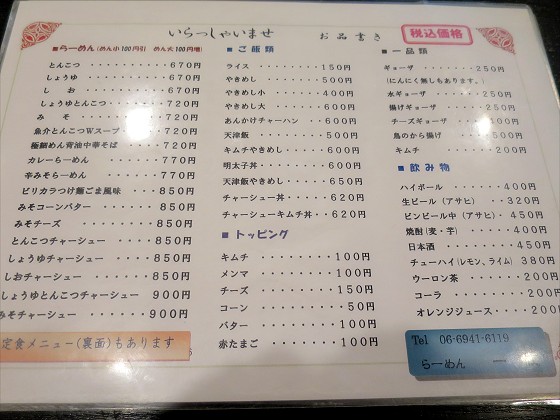 いらっしゃいませ
お品書き
税込価格
■らーめん(めん小100円引 めん大100円増)
とんこつ ・・・・・・・ 670円
しょうゆ ・・・・・・・ 670円
しお ・・・・・・・ 670円
しょうゆとんこつ ・・・・ 720円
みそ ・・・・・・・ 720円
魚介とんこつWスープ ・・・ 720円
極細めん背油中華そば ・・・ 720円
カレーらーめん ・・・・ 770円
辛みそらーめん ・・・・ 770円
ピリカラつけ麺ごま風味 ・・・ 850円
みそコーンバター ・・・・ 850円
みそチーズ ・・・・・・ 850円
とんこつチャーシュー ・・・・ 850円
しょうゆチャーシュー ・・・・ 850円
しおチャーシュー ・・・・・ 850円
しょうゆとんこつチャーシュー 900円
みそチャーシュー ・・・・・ 900円
定食メニュー(裏面)もあります
■ご飯類
ライス ・・・・・・・ 150円
やきめし ・・・・・・・ 500円
やきめし小 ・・・・・・ 400円
やきめし大 ・・・・・・ 600円
あんかけチャーハン ・・ 600円
天津飯 ・・・・・・・ 500円
キムチやきめし ・・・・ 600円
明太子丼 ・・・・・・・ 600円
天津飯やきめし ・・・・ 650円
チャーシュー丼 ・・・・ 620円
チャーシューキムチ丼 ・・ 620円
■トッピング
キムチ ・・・・・・・ 100円
メンマ ・・・・・・・ 100円
チーズ ・・・・・・・ 150円
コーン ・・・・・・・ 50円
バター ・・・・・・・ 100円
赤たまご ・・・・・・・ 100円
■一品類
ギョーザ ・・・・・・ 250円
(にんにく無しもあります。)
水ギョーザ ・・・・・ 250円
揚げギョーザ ・・・・ 250円
チーズギョーザ ・・・
鳥のから揚げ ・・・・ 500円
キムチ ・・・・・・ 200円
■飲み物
ハイボール ・・・・・ 400円
生ビール(アサヒ) ・・ 320円
ビンビール中(アサヒ) ・・ 450円
焼酎(麦・芋) ・・・・ 400円
日本酒 ・・・・・・ 450円
チューハイ(レモン、ライム) 380円
ウーロン茶 ・・・・・ 200円
コーラ ・・・・・・ 200円
オレンジジュース ・・・・ 200円
Tel 06-6941-6119
らーめん 一